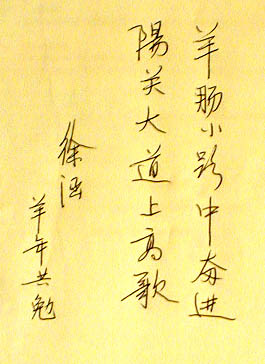 羊肠小路中奋进
陽关大道上高歌
徐涵
羊年共勉